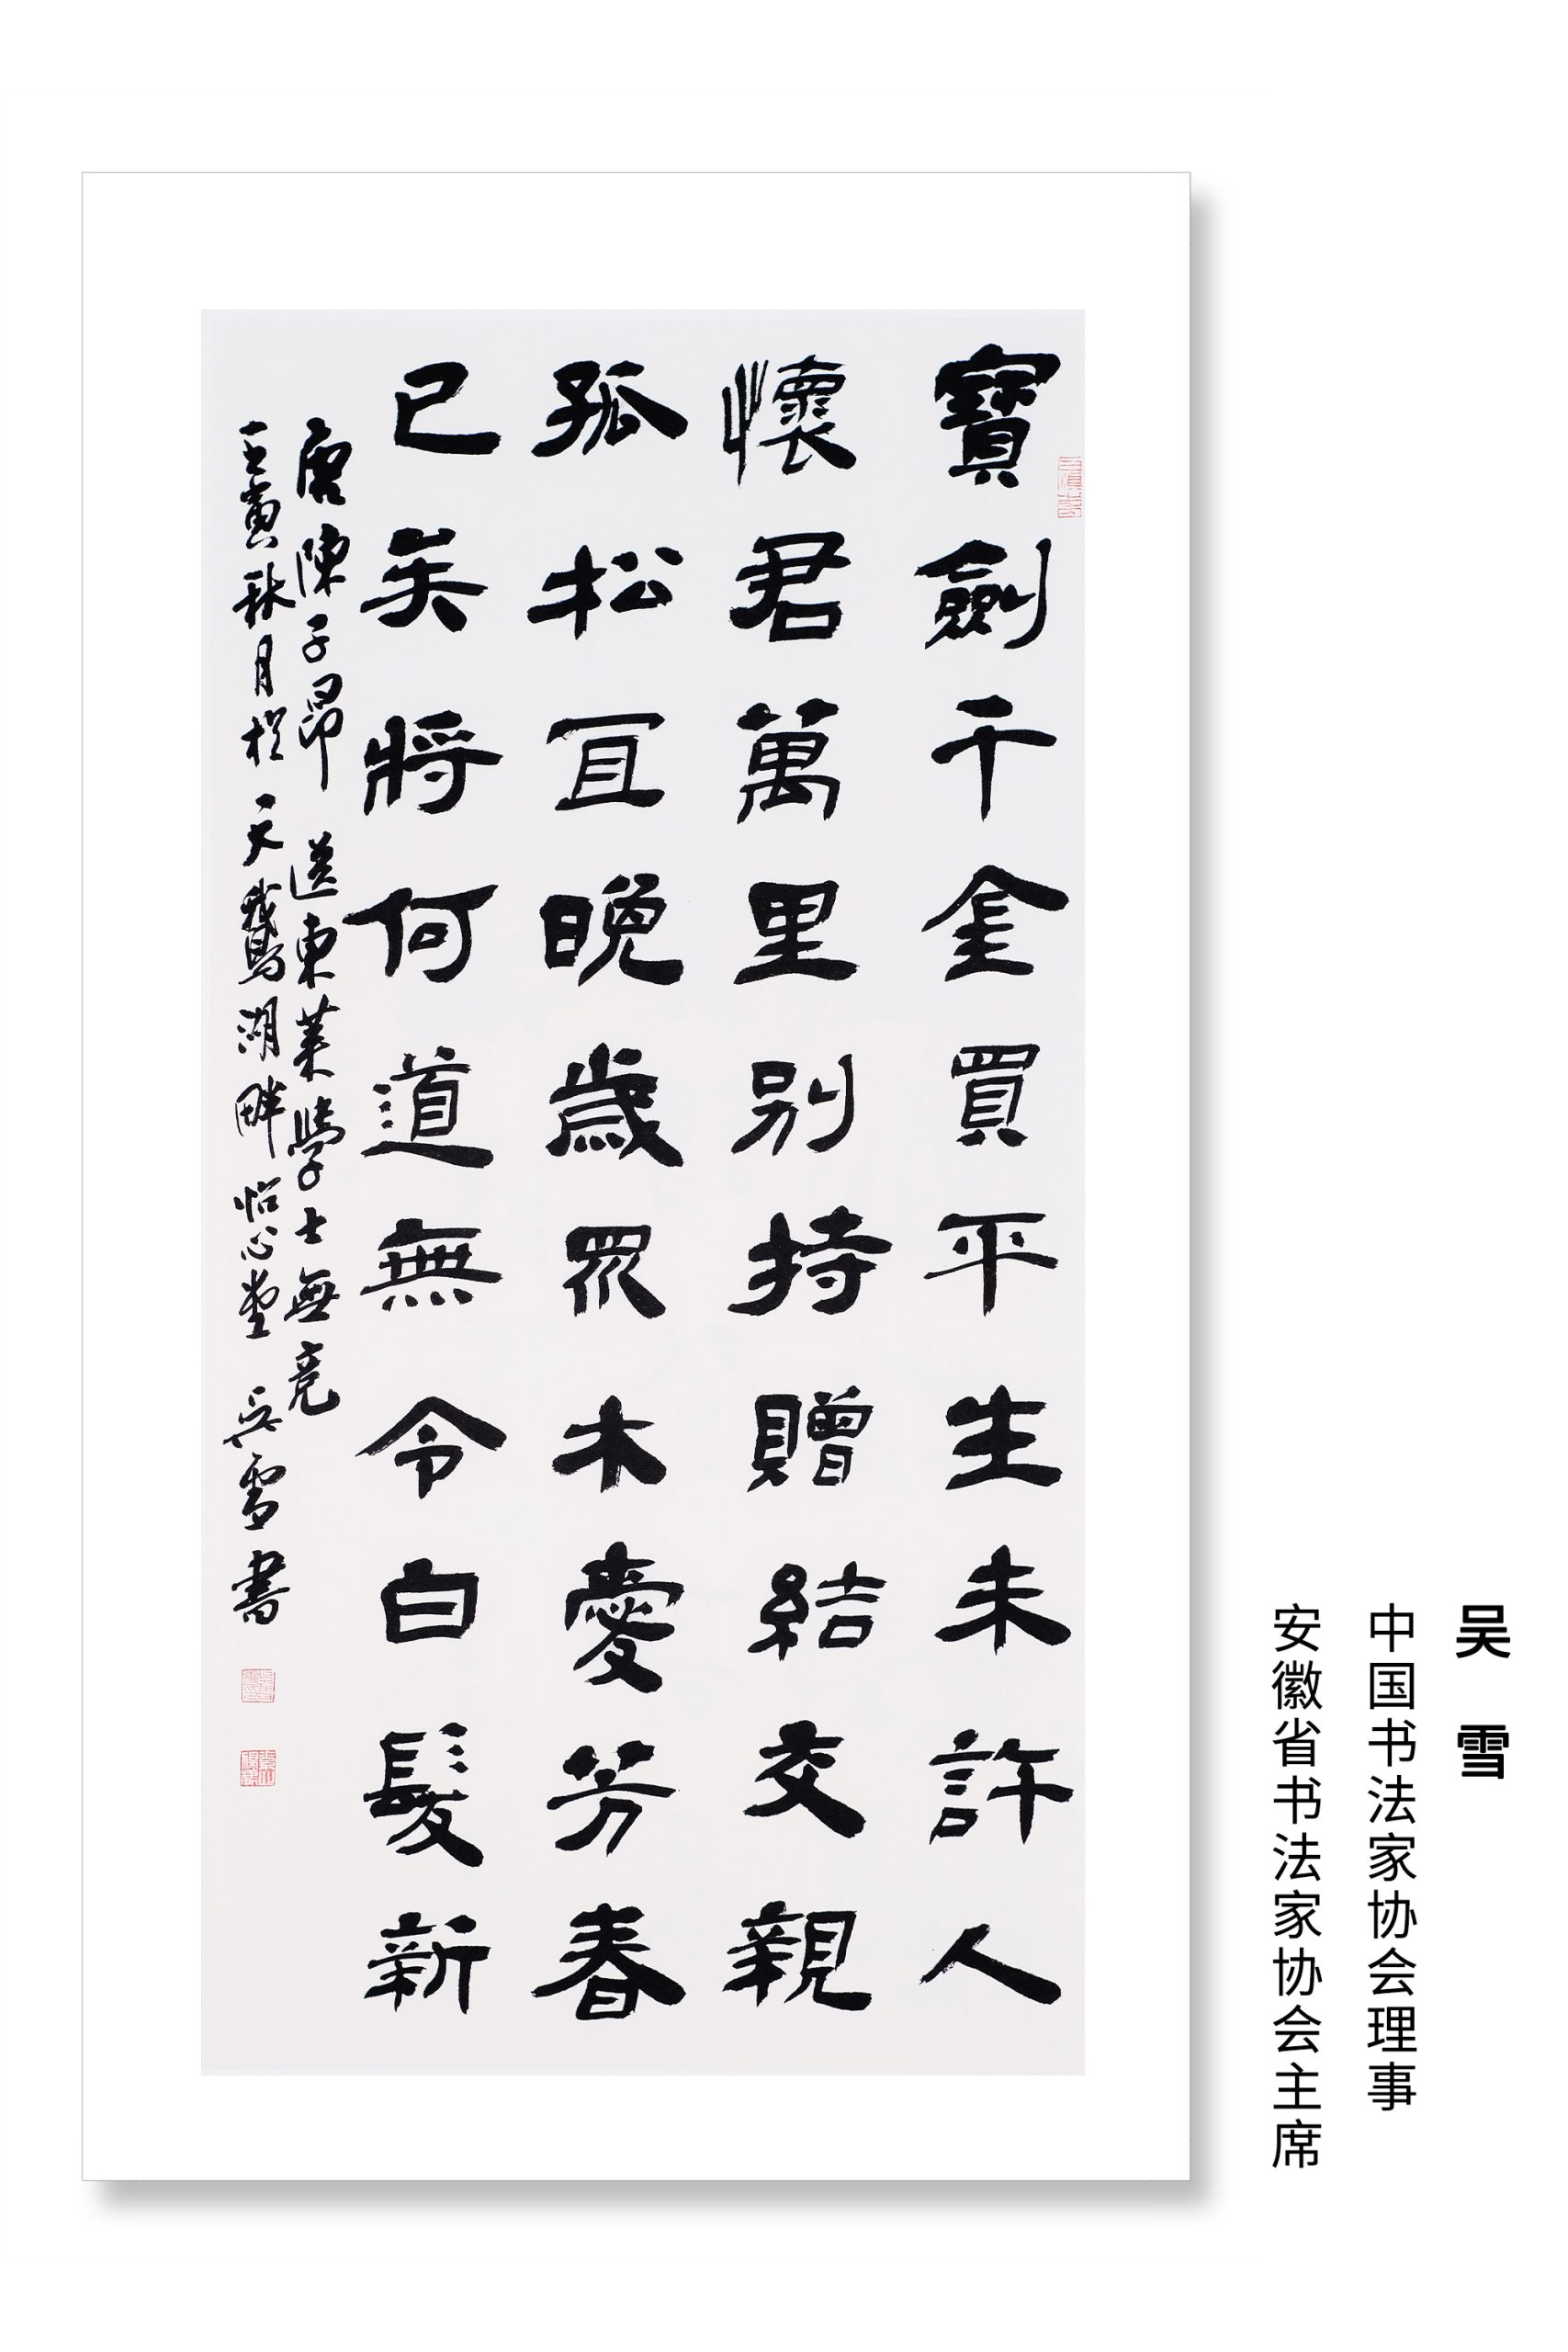 寶劍千金買平生未許人
懷君萬里別持贈結交親
孤松宜晚歲眾木愛芳春
已矣將何道無令白髮新
唐陳子昂送東萊學士無競
壬寅秋月於天鵝湖畔怡心堂吳雪書
吴雪
中国书法家协会理事
安徽省书法家协会主席